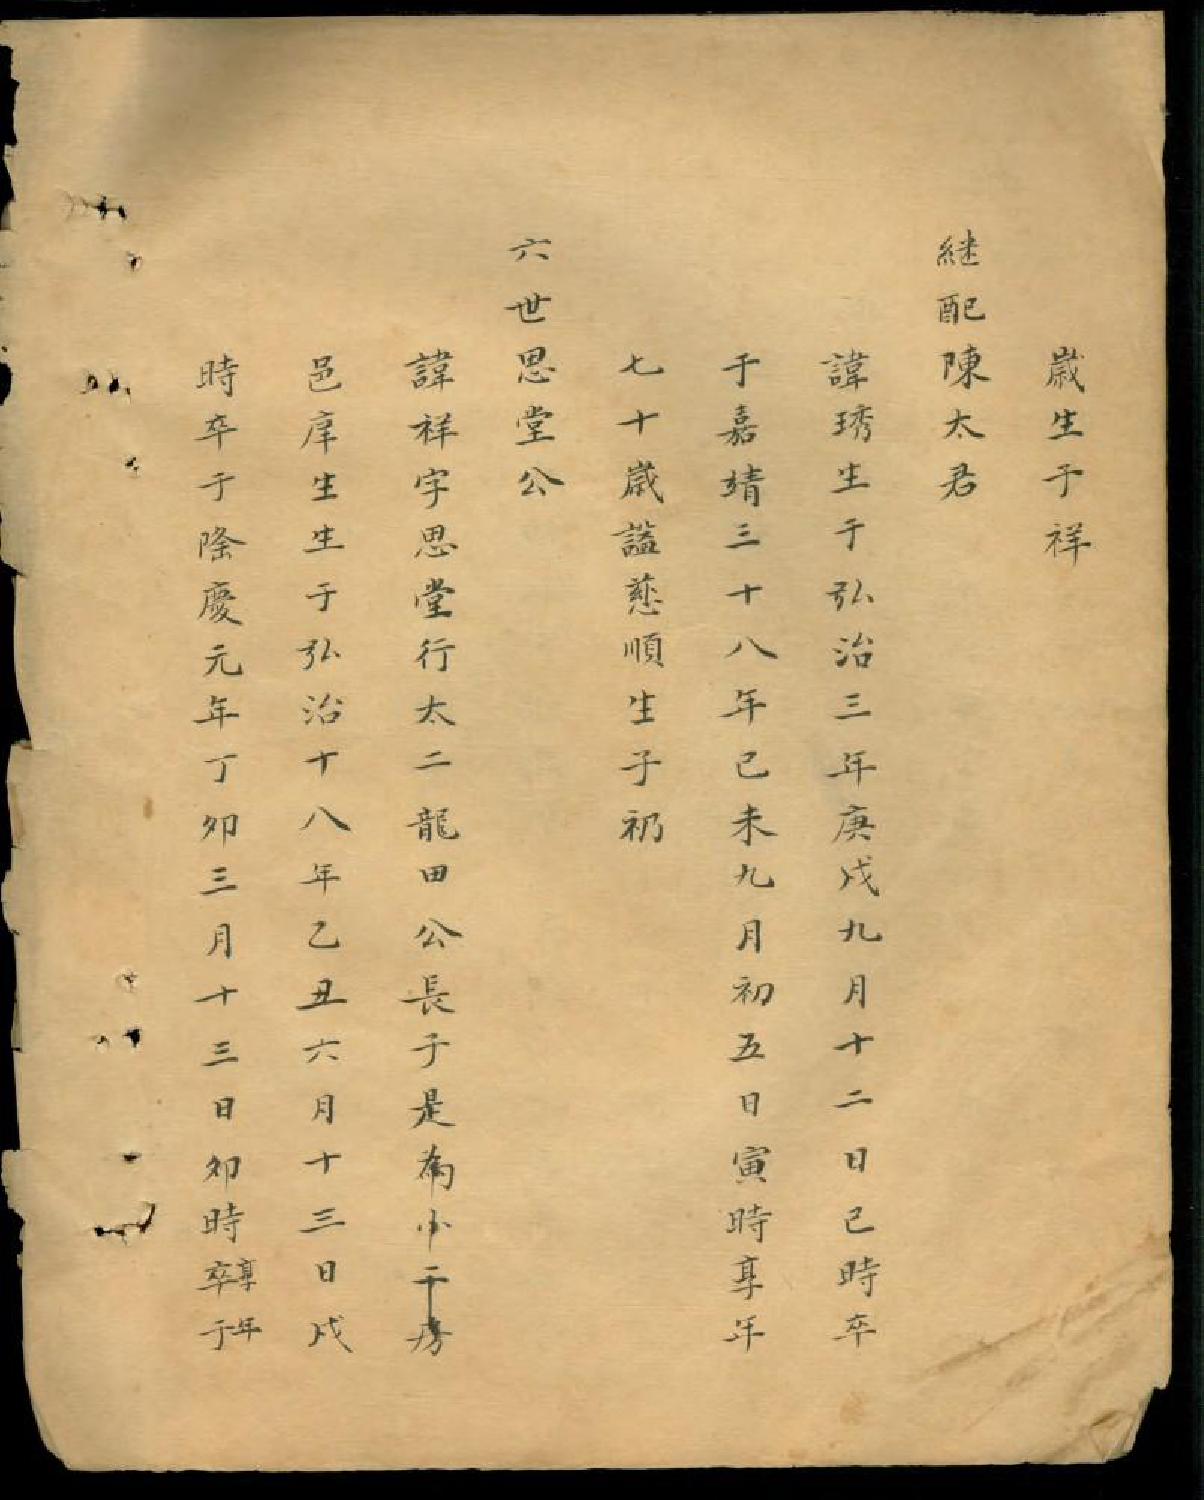 歲生子祥
継配陳太君
諱琇生于弘治三年庚戌九月十二日巳時卒
于嘉靖三十八年己未九月初五日寅時享年
七十歲謚慈順生子礽
六世思堂公
諱祥字思堂行太二龍田公長子是為小二房
邑庠生生于弘治十八年乙丑六月十三日戌
時卒于隆慶元年丁卯三月十三日卯時享年卒于